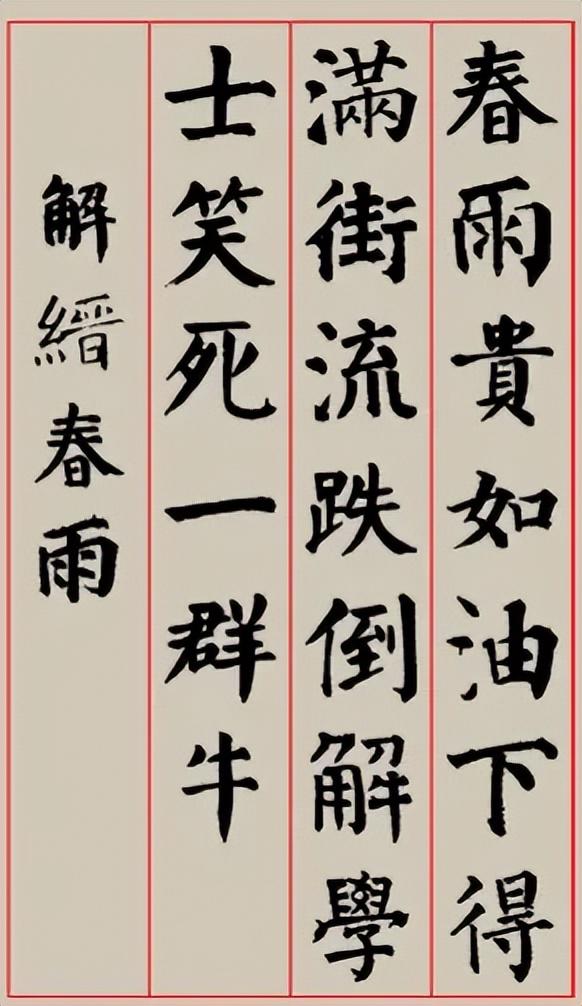 春雨貴如油下得
滿街流跌倒解學
士笑死一群牛
解縉春雨